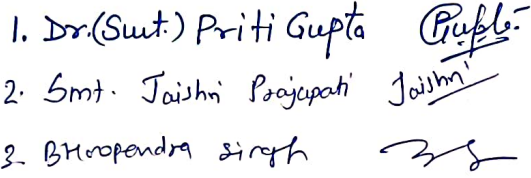 1. Dr.(Smt.) Priti Gupta PGupta
2. Smt. Jaishri Prajapati Jaishri
3. BHoopendra singh